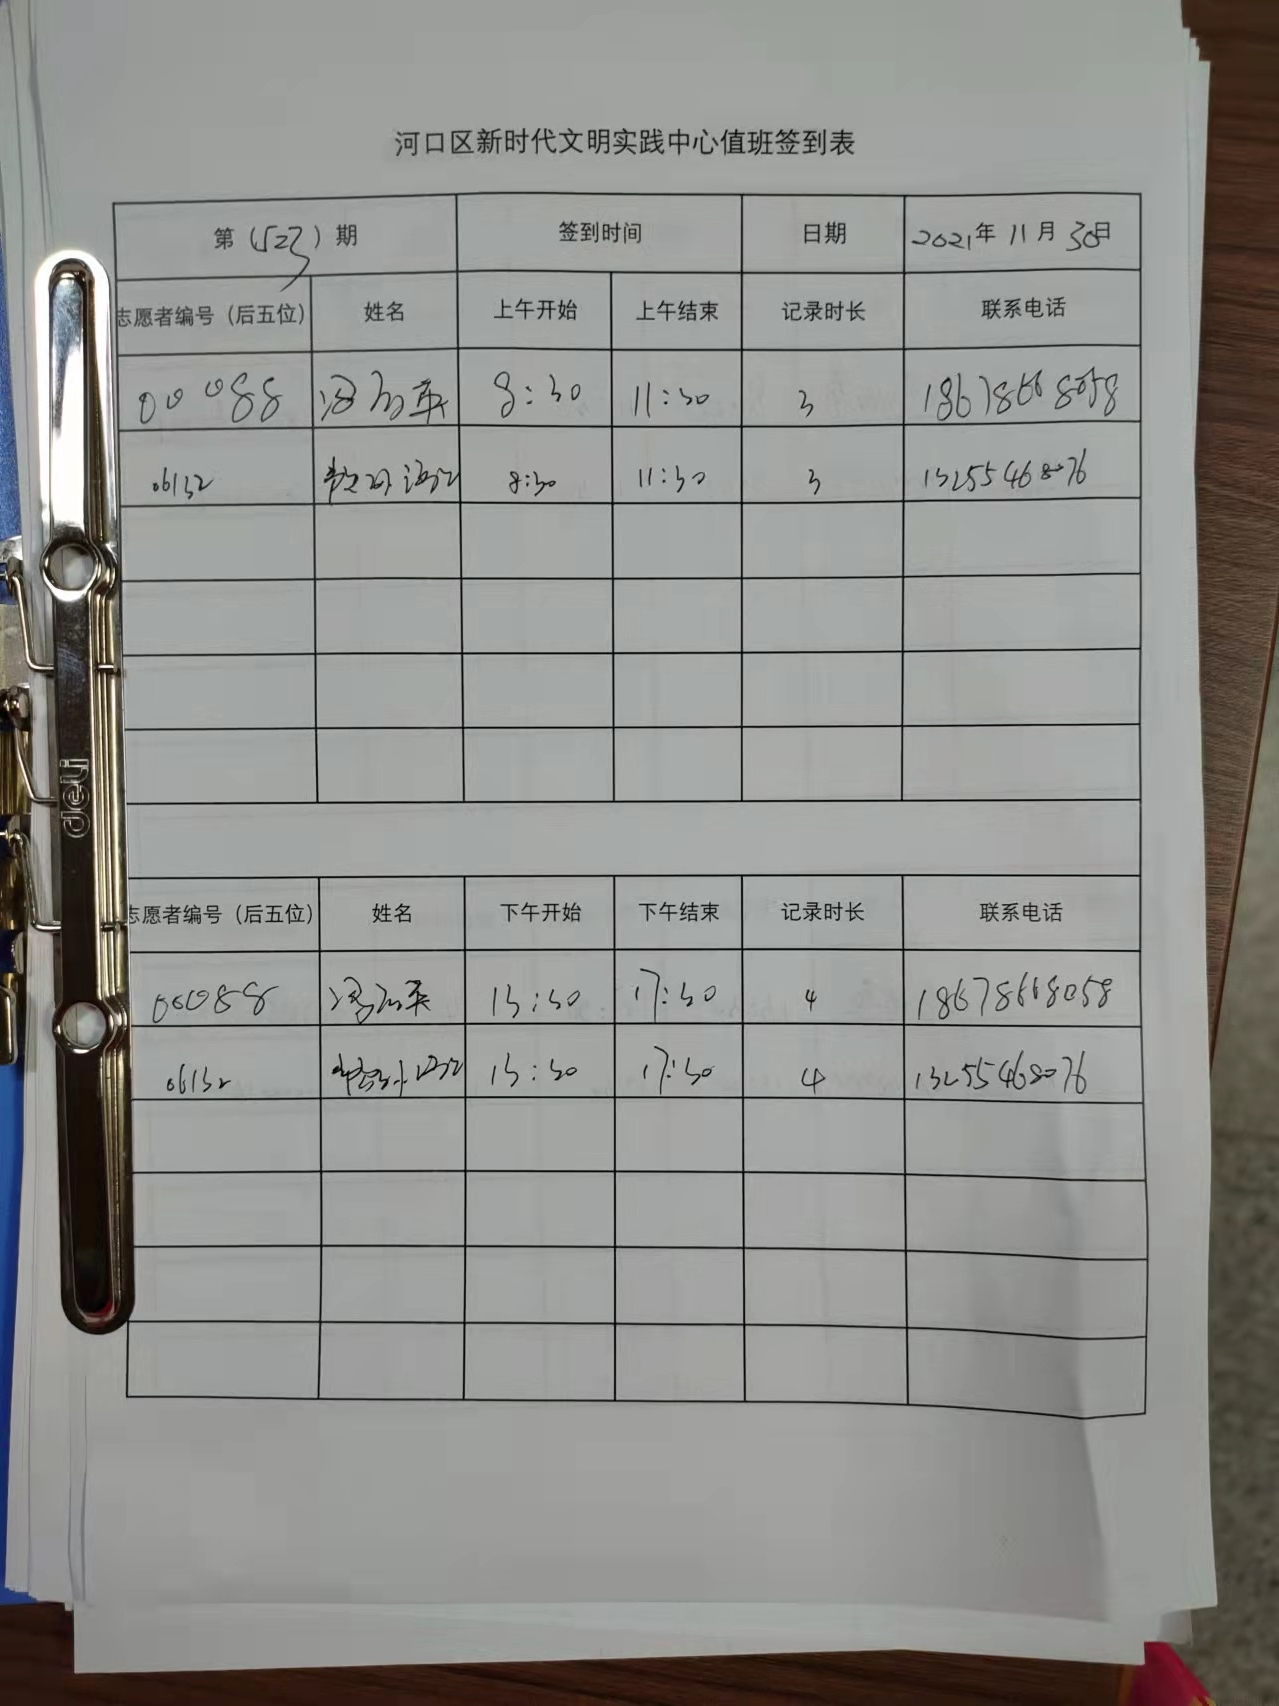 河口区新时代文明实践中心值班签到表
第（523）期 签到时间 日期 2021年 11月 30日
志愿者编号（后五位） 姓名 上午开始 上午结束 记录时长 联系电话
00088 8:30 11:30 3 18678668058
06132 8:30 11:30 3 13255468076
deli
志愿者编号（后五位） 姓名 下午开始 下午结束 记录时长 联系电话
00088 13:30 17:30 4 18678668058
06132 13:30 17:30 4 13255468076